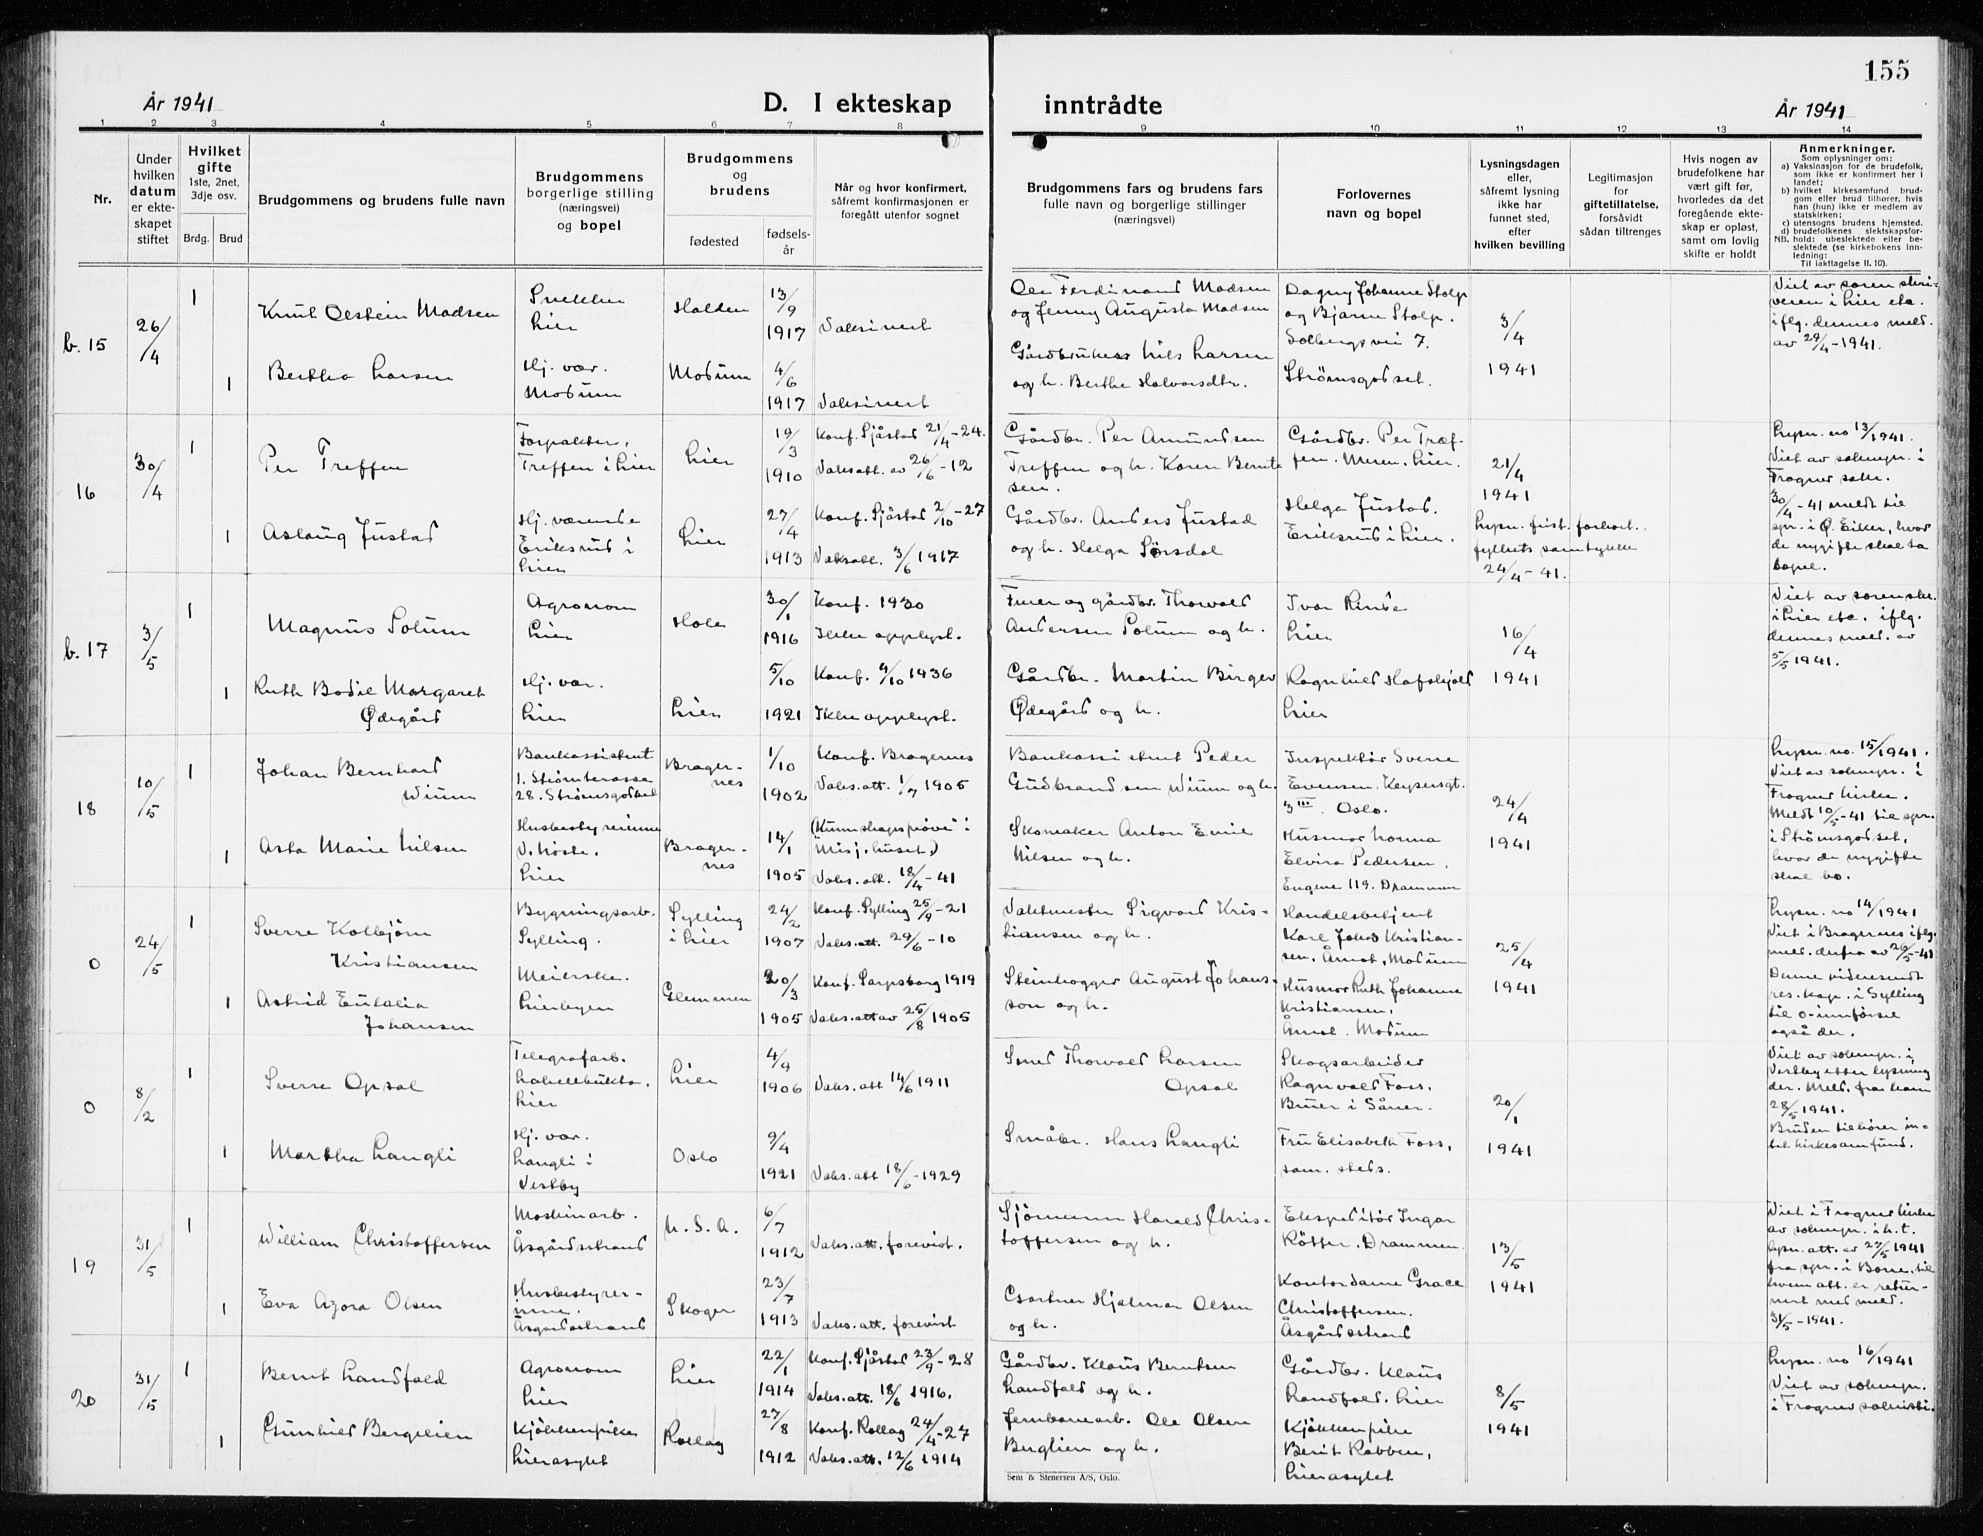 155
År 1941
D. I ekteskap inntrådte
År 1941
1 2 3 4 5 6 7 8 9 10 11 12 13 14
Nr.
Under
hvilken
datum
er ekte-
skapet
stiftet
Hvilket
gifte
1ste, 2net,
3dje osv.
Brdg. Brud
Brudgommens og brudens fulle navn
Brudgommens
borgerlige stilling
(næringsvei)
og bopel
Brudgommens
og
brudens
fødested
fødsels-
år
Når og hvor konfirmert,
såfremt konfirmasjonen er
foregått utenfor sognet
Brudgommens fars og brudens fars
fulle navn og borgerlige stillinger
(næringsvei)
Forlovernes
navn og bopel
Lysningsdagen
eller,
såfremt lysning
ikke har
funnet sted,
efter
hvilken bevilling
Legitimasjon
for
giftetillatelse,
forsåvidt
sådan tiltrenges
Hvis nogen av
brudefolkene har
vært gift før,
hvorledes da det
foregående ekte-
skap er opløst,
samt om lovlig
skifte er holdt
Anmerkninger.
Som oplysninger om:
a) Vaksinasjon for de brudefolk,
som ikke er konfirmert her i
landet;
b) hvilket kirkesamfund brud-
gom eller brud tilhører, hvis
han (hun) ikke er medlem av
statskirken;
c) utensogns brudens hjemsted.
d) brudefolkenes slektskapsfor-
NB. hold: ubeslektede eller be-
slektede (se kirkebokens inn-
ledning:
Til iakttagelse II. 10).
b. 15
26/4
1
Knut Oestein Madsen
Snekker
Lier
Halden
13/9
1917
Vaksinert
Ole Ferdinand Madsen
og Jenny Augusta Madsen
Dagny Johanne Stolp
og Bjarne Stolp.
Solbergsvei 7.
Strømsgodset.
3/4
1941
Viet av soren skri-
veren i Lier etc.
iflg. dennes meld.
av 29/4-1941.
1
Bertha Larsen
Hj. vær.
Modum
Modum
4/6
1917
Vaksinert
Gårdbruker Nils Larsen
og h. Berthe Halvorsdtr.
16
30/4
1
Per Treffen
Forpakter,
Treffen i Lier
Lier
19/3
1910
Konf. Sjåstad 21/4-24.
Vaks.att. av 26/6-12
Gårdbr. Per Amundsen
Treffen og h. Karen Bernt-
sen.
Gårdbr. Per Træf-
fen. Meren. Lier.
21/4
1941
Lysn. no 13/1941.
Viet av soknepr. i
Frogner sokn.
30/4-41 meldt til
spr. i Ø. Eiker, hvor
de nygifte skal ta
bopel.
1
Aslaug Justad
Hj. værende
Eriksrud i
Lier
Lier
27/4
1913
Konf. Sjåstad 2/10-27
Vaksatt. 3/6 1917
Gårdbr. Anders Justad
og h. Helga Sørsdal
Helga Justad.
Eriksrud i Lier.
Lysn. frist forkort.,
fylkets samtykke
24/4-41.
b. 17
3/5
1
Magnus Solum
Agronom
Lier
Hole
30/1
1916
Konf. 1930
Ikke opplyst.
Fhver og gårdbr. Thorvald
Andersen Solum og h.
Ivar Rinde
Lier
16/4
1941
Viet av sorenskr.
i Lier etc. iflg.
dennes meld. av
5/5 1941.
1
Ruth Bodil Margaret
Ødegård
Hj. vær.
Lier
Lier
5/10
1921
Konf. 4/10 1936
Ikke opplyst.
Gårdbr. Martin Birger
Ødegård og h.
Ragnhild Hafskjold
Lier
18
10/5
1
Johan Bernhard
Wium
Bankassistent
1. Strømterasse
28. Strømsgodset
Brager-
nes
1/10
1902
Konf. Bragernes
Vaks.att. 1/7 1905
Bankassistent Peder
Gudbrandsen Wium og h.
Inspektør Sverre
Evensen. Keysersgt.
3 III Oslo.
24/4
1941
Lysn. no. 15/1941.
Viet av soknepr. i
Frogner kirke.
Meldt 10/5-41 til spr.
i Strømsgodset,
hvor de nygifte
skal bo.
1
Asta Marie Nilsen
Husbestyrerinne
V. Nøste.
Lier
Brager-
nes
14/1
1905
(Kunnskapsprøve i
Misj.huset.)
Vaks.att. 18/4-41
Skomaker Anton Emil
Nilsen og h.
Husmor Norma
Elvira Pedersen.
Engene 119. Drammen
0
24/5
1
Sverre Kolbjørn
Kristiansen
Bygningsarb.
Sylling.
Sylling
i Lier
24/2
1907
Konf. Sylling 25/9-21
Vaks.att. 29/6-10
Vaktmester Sigvard Kris-
tiansen og h.
Handelsbetjent
Karl Johs Kristian-
sen, Åmot, Modum
25/4
1941
Lysn. no 14/1941
Viet i Bragernes iflg.
meld. derfra av 26/5-41
Denne videresendt
res. kap. i Sylling
til 0-innførsel
også der.
1
Astrid Eulalia
Johansen
Meierske.
Lierbyen
Glemmen
20/3
1905
Konf. Sarpsborg 1919
Vaks.att av 25/8 1905
Steinhogger August Johans-
son og h.
Husmor Ruth Johanne
Kristiansen,
Åmot. Modum
0
8/2
1
Sverre Opsal
Telegrafarb.
Lahellebukta.
Lier
Lier
4/9
1906
Vaks.att 14/6 1911
Smed Thorvald Larsen
Opsal
Skogsarbeider
Ragnvald Foss.
Bruer i Såner.
20/1
1941
Viet av soknepr. i
Vestby etter lysning
der. Meld. fra ham
28/5 1941.
Bruden tilhører in-
tet kirkesamfund.
1
Martha Langli
Hj. vær.
Langli i
Vestby
Oslo
9/4
1921
Vaks.att 18/6-1929
Småbr. Hans Langli
Fru Elisabeth Foss,
sam. steds.
19
31/5
1
William Christoffersen
Maskinarb.
Åsgårdstrand
U. S. A.
6/7
1912
Vaks.att. forevist.
Sjømann Harald Chris-
toffersen og h.
Ekspeditør Ingar
Røtter. Drammen.
13/5
1941
Viet i Frogner kirke
av soknepr. i h.t.
lysn. att. av 27/5 1941
fra spr. i Borre, til
hvem att. er retur-
nert med meld.
31/5-1941.
1
Eva Azora Olsen
Husbestyrer-
inne.
Åsgårdstrand
Skoger
23/7
1913
Vaks.att. forevist
Gartner Hjalmar Olsen
og h.
Kontordame Grace
Christoffersen.
Åsgårdstrand
20
31/5
1
Bernt Landfald
Agronom
Lier
Lier
22/1
1914
Konf. Sjåstad 23/9-28
Vaks.att. 18/6 1916.
Gårdbr. Klaus Berntsen
Landfald og h.
Gårdbr. Klaus
Landfald. Lier
8/5
1941
Lysn. no 16/1941
Viet av soknepr.
i Frogner sakristi.
1
Gunhild Bergelien
Kjøkkenpike
Lierasylet
Rollag
27/8
1912
Konf. Rollag 24/4-27
Vaks.att. 12/6 1914
Jernbanearb. Ole Olsen
Berglien og h.
Kjøkkenpike
Berit Rabben,
Lierasylet
Sem & Stenersen A/S, Oslo.